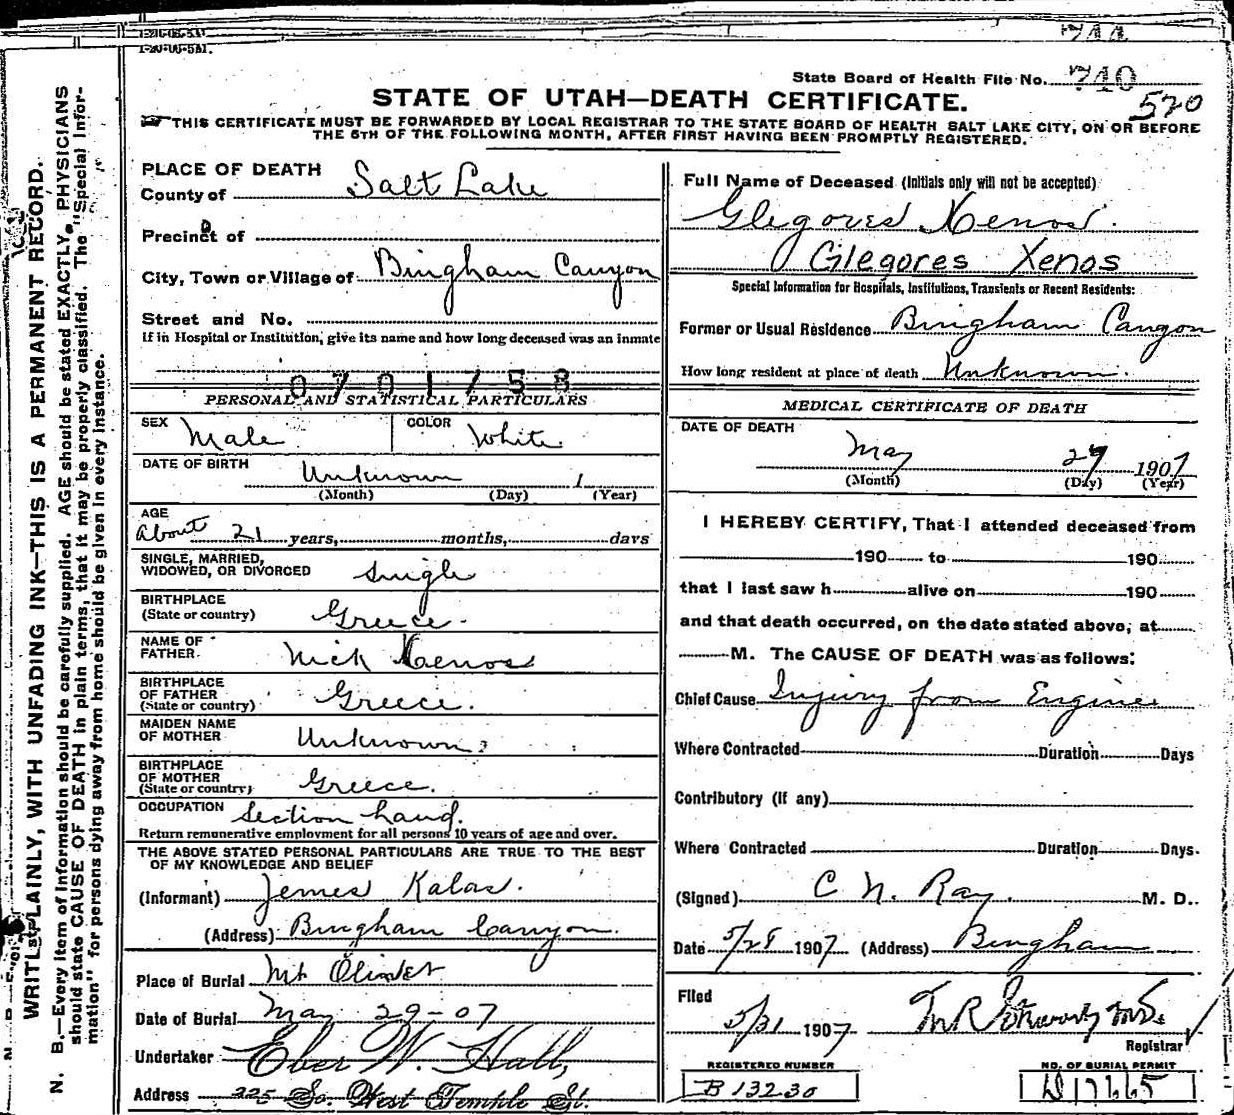 1-20-06-5M.
State Board of Health File No. 740
570
STATE OF UTAH—DEATH CERTIFICATE.
THIS CERTIFICATE MUST BE FORWARDED BY LOCAL REGISTRAR TO THE STATE BOARD OF HEALTH SALT LAKE CITY, ON OR BEFORE
THE 5TH OF THE FOLLOWING MONTH, AFTER FIRST HAVING BEEN PROMPTLY REGISTERED.
WRITE PLAINLY, WITH UNFADING INK—THIS IS A PERMANENT RECORD.
N. B.—Every item of information should be carefully supplied. AGE should be stated EXACTLY. PHYSICIANS
should state CAUSE OF DEATH in plain terms, that it may be properly classified. The "Special Infor-
mation" for persons dying away from home should be given in every instance.
PLACE OF DEATH
County of Salt Lake
Precinct of
City, Town or Village of Bingham Canyon
Street and No.
If in Hospital or Institution, give its name and how long deceased was an inmate
0701753
PERSONAL AND STATISTICAL PARTICULARS
SEX Male COLOR White
DATE OF BIRTH Unknown 1
(Month) (Day) (Year)
AGE
About 21 years, months, days
SINGLE, MARRIED,
WIDOWED, OR DIVORCED Single
BIRTHPLACE
(State or country) Greece
NAME OF
FATHER Nick Xenos
BIRTHPLACE
OF FATHER
(State or country) Greece.
MAIDEN NAME
OF MOTHER Unknown
BIRTHPLACE
OF MOTHER
(State or country) Greece.
OCCUPATION Section hand.
Return remunerative employment for all persons 10 years of age and over.
THE ABOVE STATED PERSONAL PARTICULARS ARE TRUE TO THE BEST
OF MY KNOWLEDGE AND BELIEF
(Informant) James Kalas.
(Address) Bingham Canyon.
Place of Burial Mt Olivet
Date of Burial May 29-07
Undertaker Eber W. Hall,
Address 225 So. West Temple St.
Full Name of Deceased (Initials only will not be accepted)
Glegores Xenos.
Glegores Xenos
Special Information for Hospitals, Institutions, Transients or Recent Residents:
Former or Usual Residence Bingham Canyon
How long resident at place of death Unknown.
MEDICAL CERTIFICATE OF DEATH
DATE OF DEATH
May 27 1907
(Month) (Day) (Year)
I HEREBY CERTIFY, That I attended deceased from
190 to 190
that I last saw h alive on 190
and that death occurred, on the date stated above, at
M. The CAUSE OF DEATH was as follows:
Chief Cause Injury from Engine
Where Contracted Duration Days
Contributory (if any)
Where Contracted Duration Days.
(Signed) C N. Ray. M. D.
Date 5/28 1907 (Address) Bingham
Filed
5/31 1907
Registrar
REGISTERED NUMBER
B 13230
NO. OF BURIAL PERMIT